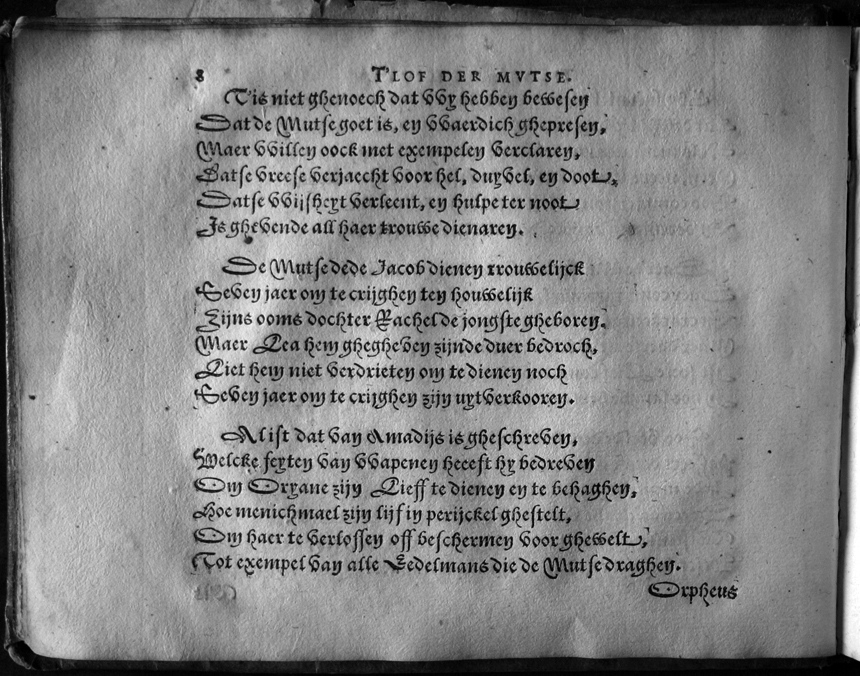 8 T'LOF DER MVTSE.
T'is niet ghenoech dat VVy hebben bewesen
Dat de Mutse goet is, en VVaerdich ghepresen,
Maer VVillen oock met exempelen verclaren,
Datse vreese verjaecht voor hel, duyvel, en doot,
Datse VVijsheyt verleent, en hulpe ter noot
Is ghevende all haer trouwe dienaren.
De Mutse dede Jacob dienen trouwelijck
Seven jaer om te crijghen ten houwelijk
Zijns ooms dochter Rachel de jongste gheboren.
Maer Lea hem ghegheven zijnde duer bedroch,
Liet hem niet verdrieten om te dienen noch
Seven jaer om te crijghen zijn uytverkooren.
Alist dat van Amadijs is gheschreven,
Welcke feyten van VVapenen heeeft hy bedreven
Om Oryane zijn Lieff te dienen en te behaghen,
Hoe menichmael zijn lijf in perijckel ghestelt,
Om haer te verlossen off beschermen voor ghewelt,
Tot exempel van alle Eedelmans die de Mutse draghen.
Orpheus